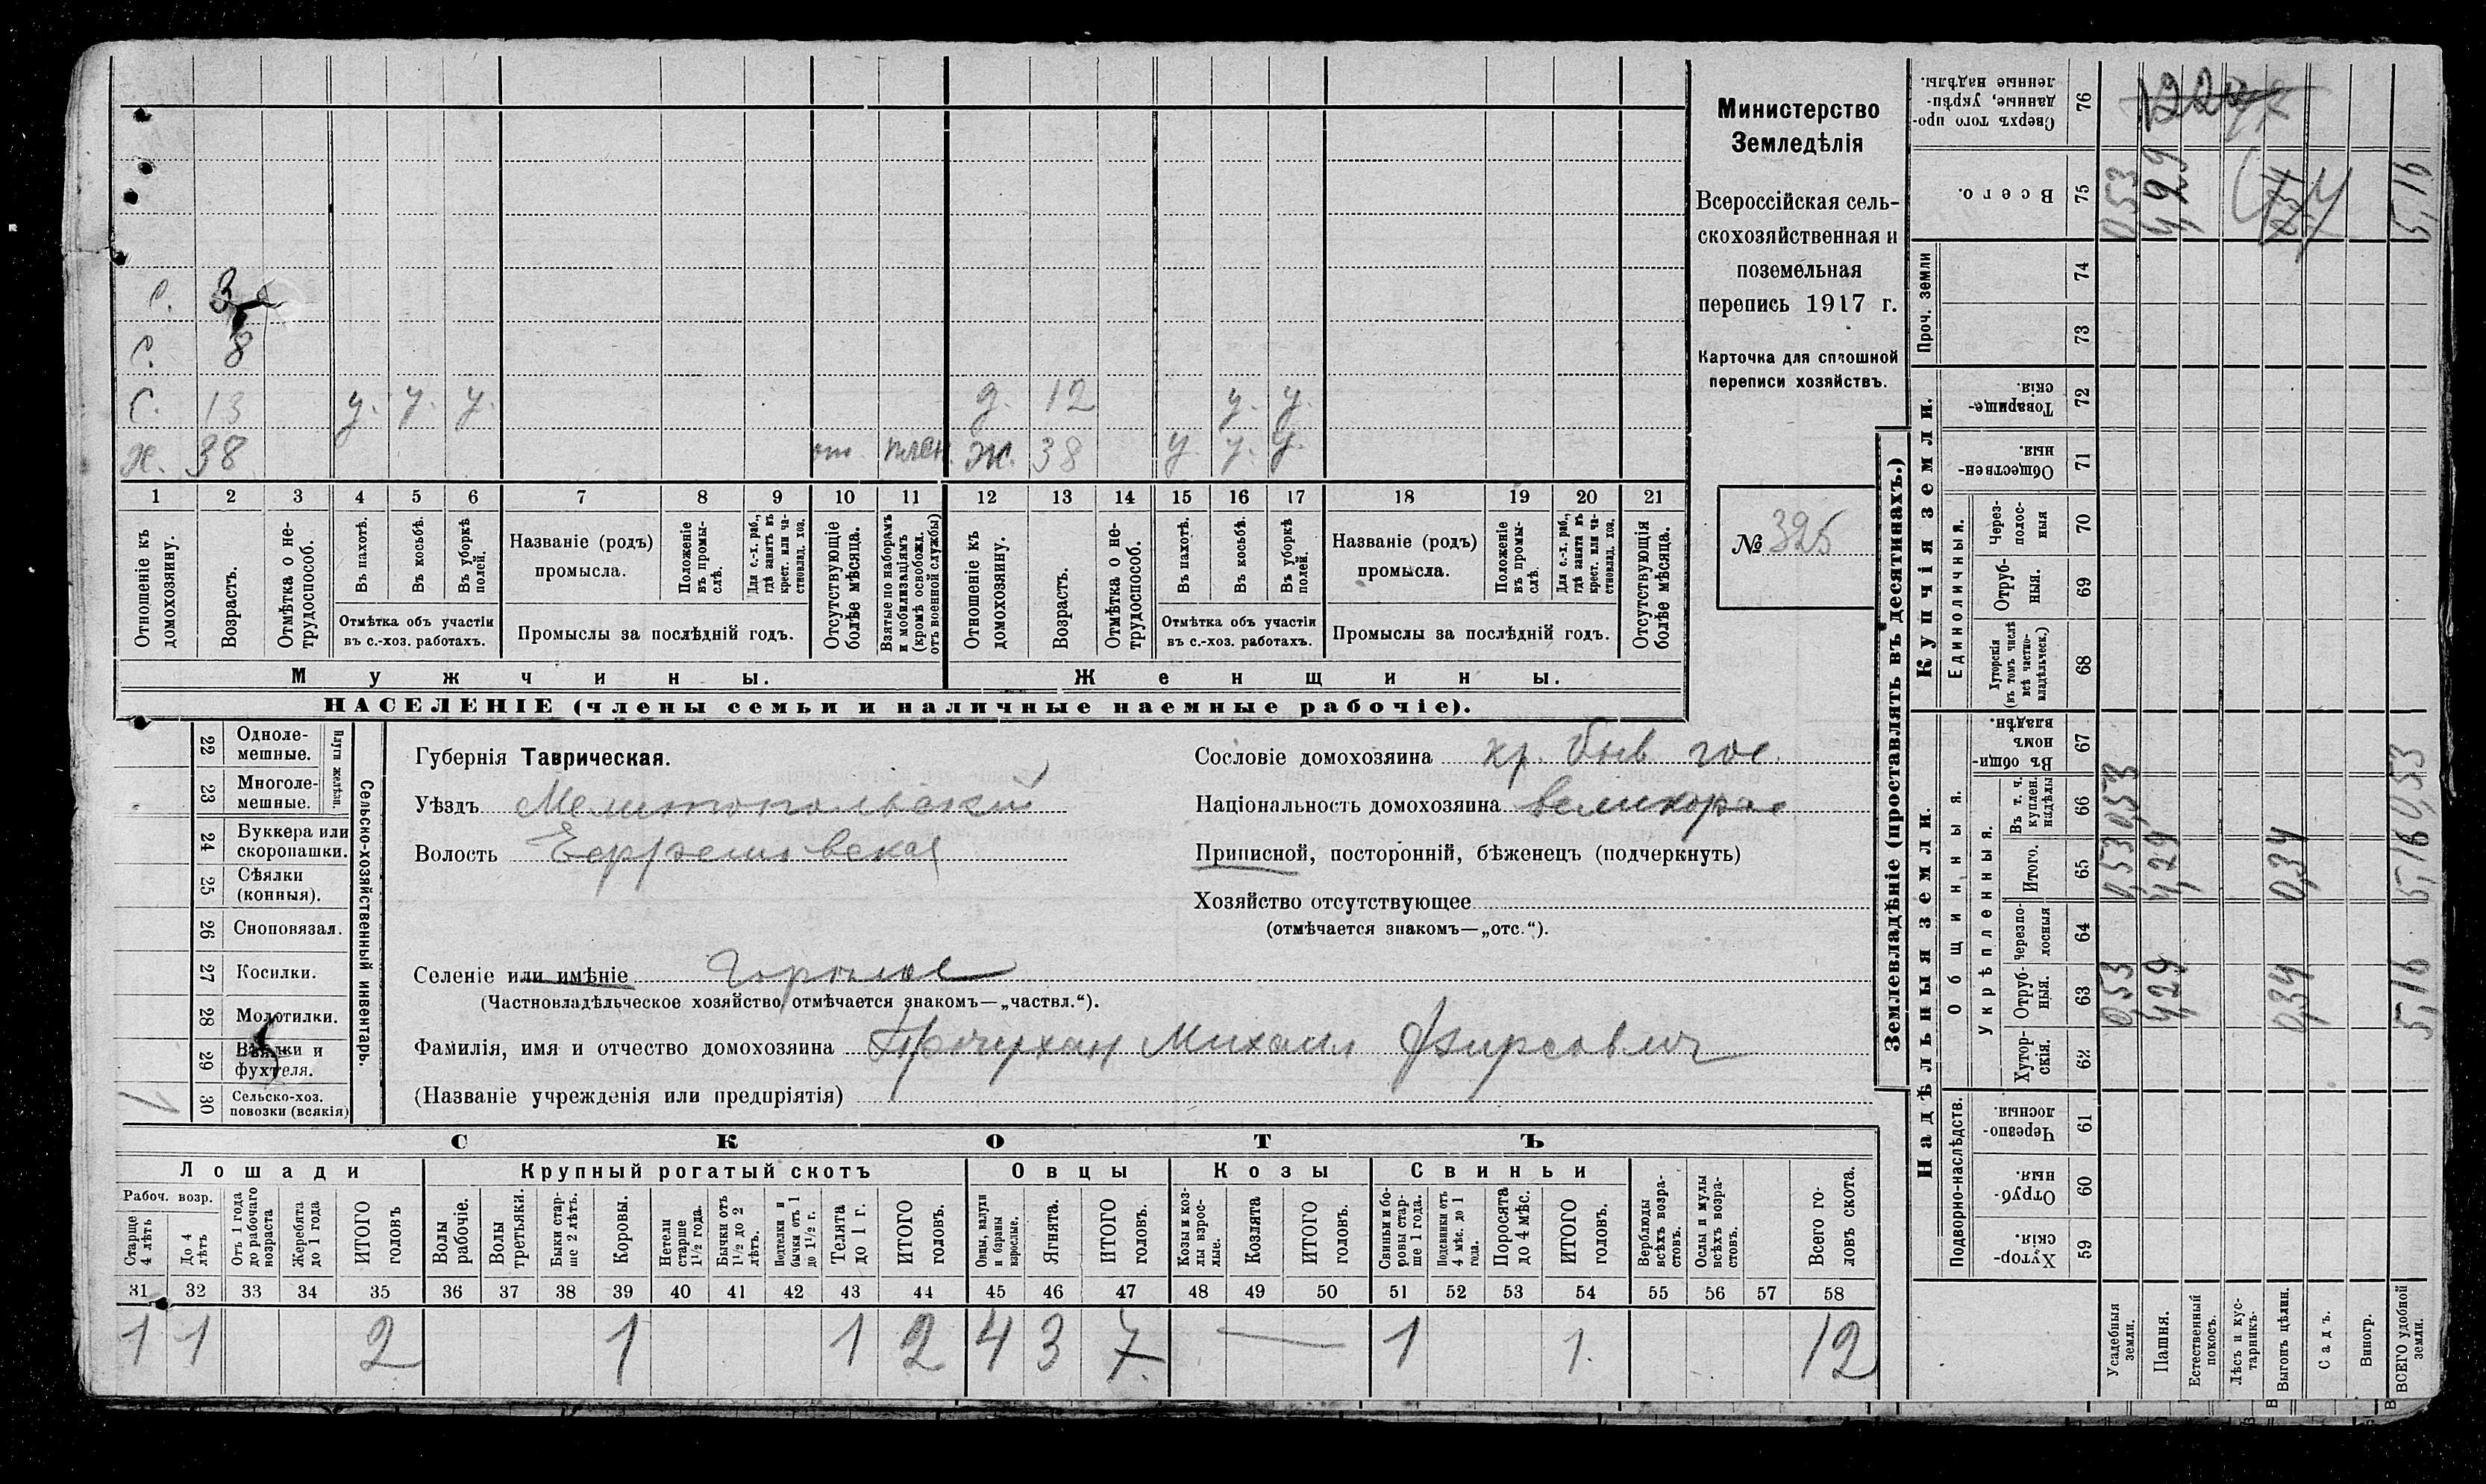 Министерство
Земледѣлія
Всероссійская сель-
скохозяйственная и
поземельная
перепись 1917 г.
Карточка для сплошной
переписи хозяйствъ.
№ 325
С.
С. 8
С. 13 у. у. у. д. 12 у. у.
х. 38 от. плен. ж. 38 у у. у.
1 2 3 4 5 6 7 8 9 10 11 12 13 14 15 16 17 18 19 20 21
Отношеніе къ домохозяину.
Возрастъ.
Отмѣтка о не-трудоспособ.
Въ пахотѣ.
Въ косьбѣ.
Въ уборкѣ полей.
Отмѣтка объ участіи въ с.-хоз. работахъ.
Названіе (родъ) промысла.
Положеніе въ промы-слѣ.
Для с.-х. раб., гдѣ занятъ въ крест. или ча-стновлад. хоз.
Промыслы за послѣдній годъ.
Отсутствующіе болѣе мѣсяца.
Взятые по наборамъ и мобилизаціямъ (кромѣ освобожд. отъ военной службы)
Отношеніе къ домохозяину.
Возрастъ.
Отмѣтка о не-трудоспособ.
Въ пахотѣ.
Въ косьбѣ.
Въ уборкѣ полей.
Отмѣтка объ участіи въ с.-хоз. работахъ.
Названіе (родъ) промысла.
Положеніе въ промы-слѣ.
Для с.-х. раб., гдѣ занята въ крест. или ча-стновлад. хоз.
Промыслы за послѣдній годъ.
Отсутствующія болѣе мѣсяца.
Мужчины. Женщины.
НАСЕЛЕНІЕ (члены семьи и наличные наемные рабочіе).
22 Одноле-мешные.
23 Многоле-мешные.
Плуги желѣзн.
24 Буккера или скоропашки.
25 Сѣялки (конныя).
26 Сноповязал.
27 Косилки.
28 Молотилки.
29 Вѣялки и фухтеля.
30 Сельско-хоз. повозки (всякія)
Сельско-хозяйственный инвентарь.
Губернія Таврическая.
Уѣздъ Мелитопольскій
Волость Ефремовская
Сословіе домохозяина кр. быв. гос.
Національность домохозяина великорос
Приписной, посторонній, бѣженецъ (подчеркнуть)
Хозяйство отсутствующее
(отмѣчается знакомъ—„отс.“).
Селеніе или имѣніе Горѣлое
(Частновладѣльческое хозяйство отмѣчается знакомъ—„частвл.“).
Фамилія, имя и отчество домохозяина Михаил Фирсович
(Названіе учрежденія или предпріятія)
СКОТЪ
Лошади Крупный рогатый скотъ Овцы Козы Свиньи
Рабоч. возр.
Старше 4 лѣтъ
До 4 лѣтъ
Отъ 1 года до рабочаго возраста
Жеребята до 1 года
ИТОГО головъ
Волы рабочіе.
Волы третьяки.
Быки стар-ше 2 лѣтъ.
Коровы.
Нетели старше 1½ года.
Бычки отъ 1½ до 2 лѣтъ.
Подтелки и бычки отъ 1 до 1½ г.
Телята до 1 г.
ИТОГО головъ.
Овцы, валухи и бараны взрослые.
Ягнята.
ИТОГО головъ.
Козы и коз-лы взрос-лые.
Козлята
ИТОГО головъ.
Свиньи и бо-ровы стар-ше 1 года.
Подсвинки отъ 4 мѣс. до 1 года.
Поросята до 4 мѣс.
ИТОГО головъ.
Верблюды всѣхъ возра-стовъ.
Ослы и мулы всѣхъ возра-стовъ.
Всего го-ловъ скота.
31 32 33 34 35 36 37 38 39 40 41 42 43 44 45 46 47 48 49 50 51 52 53 54 55 56 57 58
1 1 2 1 1 2 4 3 7 — 1 1. 12
Землевладѣніе (проставлять въ десятинахъ.)
Надѣльныя земли. Купчія земли. Проч. земли
Подворно-наслѣдств. Общинныя. Укрѣпленныя. Единоличныя.
59 Хутор-скія.
60 Отруб-ныя.
61 Черезпо-лосныя.
62 Хутор-скія.
63 Отруб-ныя. 0,53 4,29 0,34 5,16
64 черезпо-лосныя
65 Итого. 0,53 4,29 0,34 5,16
66 Въ т. ч. куплен. надѣлы 0,53 0,53
67 Въ общи-номъ владѣн.
68 Хуторскія (въ томъ числѣ всѣ частно-владѣльческ.)
69 Отруб-ныя.
70 Через-полос-ныя
71 Обществен-ныя.
72 Товарище-скія.
73
74
75 Всего. 0,53 4,29 5,16
76 Сверхъ того про-данные, укрѣп-ленные надѣлы.
Усадебныя земли.
Пашня.
Естественный покосъ.
Лѣсъ и кус-тарникъ.
Выгонъ цѣлин.
Садъ.
Виногр.
ВСЕГО удобной земли.